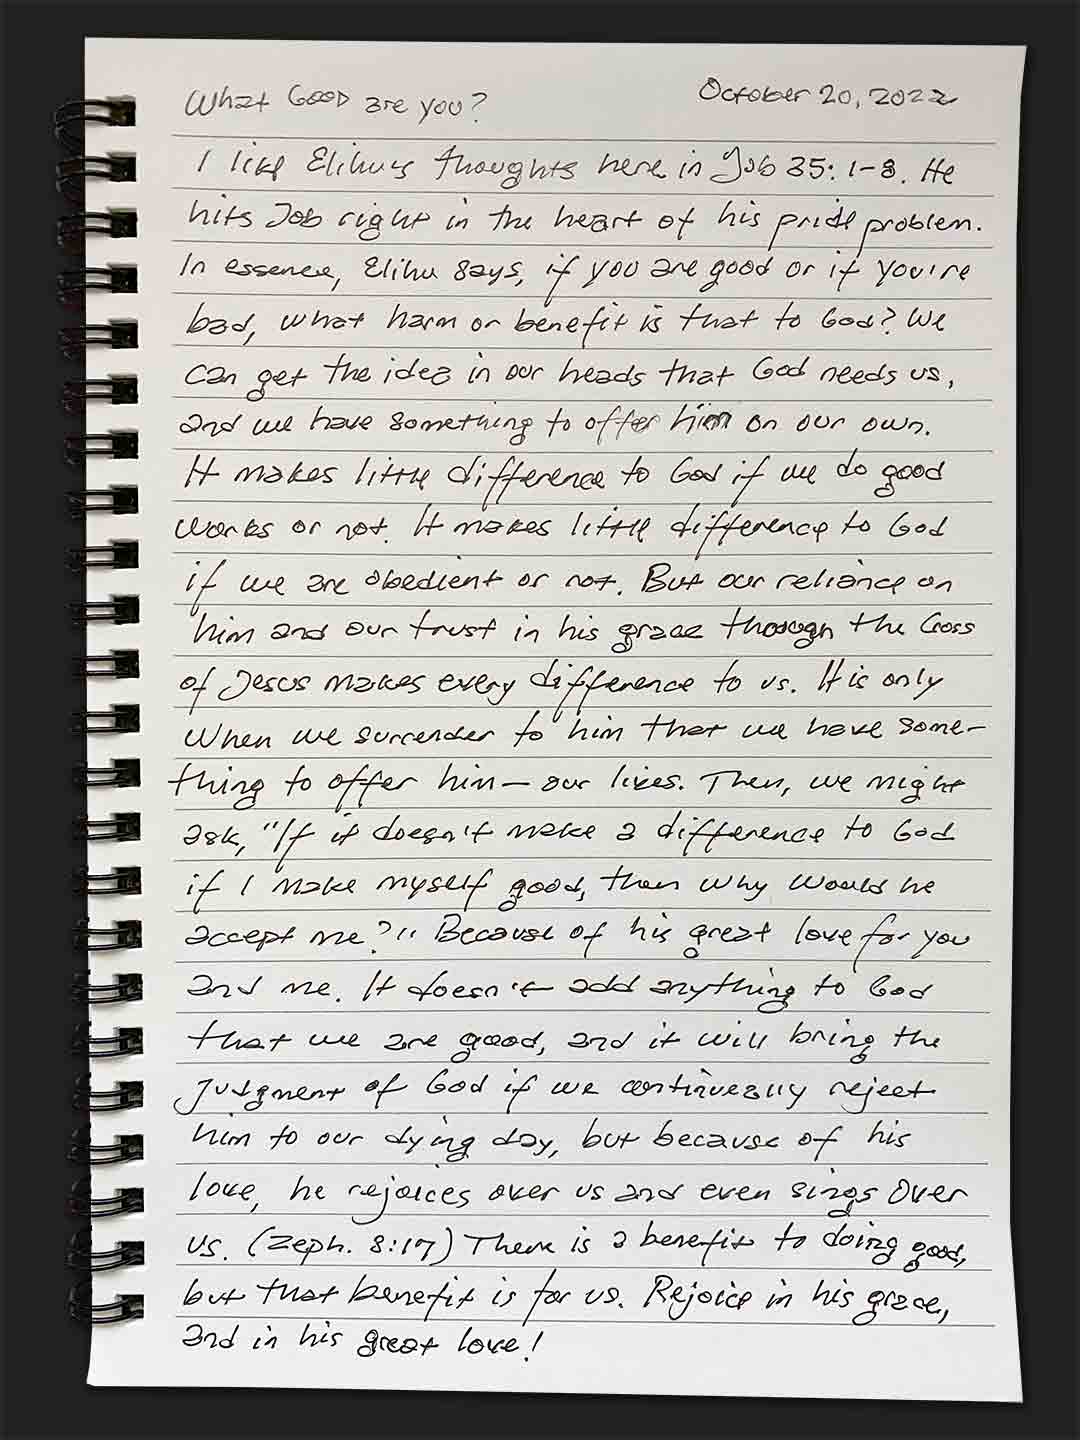 What Good are you? October 20, 2022
I like Elihu's thoughts here in Job 35:1-8. He
hits Job right in the heart of his pride problem.
In essence, Elihu says, if you are good or if you're
bad, what harm or benefit is that to God? We
can get the idea in our heads that God needs us,
and we have something to offer him on our own.
It makes little difference to God if we do good
works or not. It makes little difference to God
if we are obedient or not. But our reliance on
him and our trust in his grace through the Cross
of Jesus makes every difference to us. It is only
when we surrender to him that we have some-
thing to offer him—our lives. Then, we might
ask, "If it doesn't make a difference to God
if I make myself good, then why would he
accept me?" Because of his great love for you
and me. It doesn't add anything to God
that we are good, and it will bring the
judgment of God if we continually reject
him to our dying day, but because of his
love, he rejoices over us and even sings over
us. (Zeph. 3:17) There is a benefit to doing good,
but that benefit is for us. Rejoice in his grace,
and in his great love!